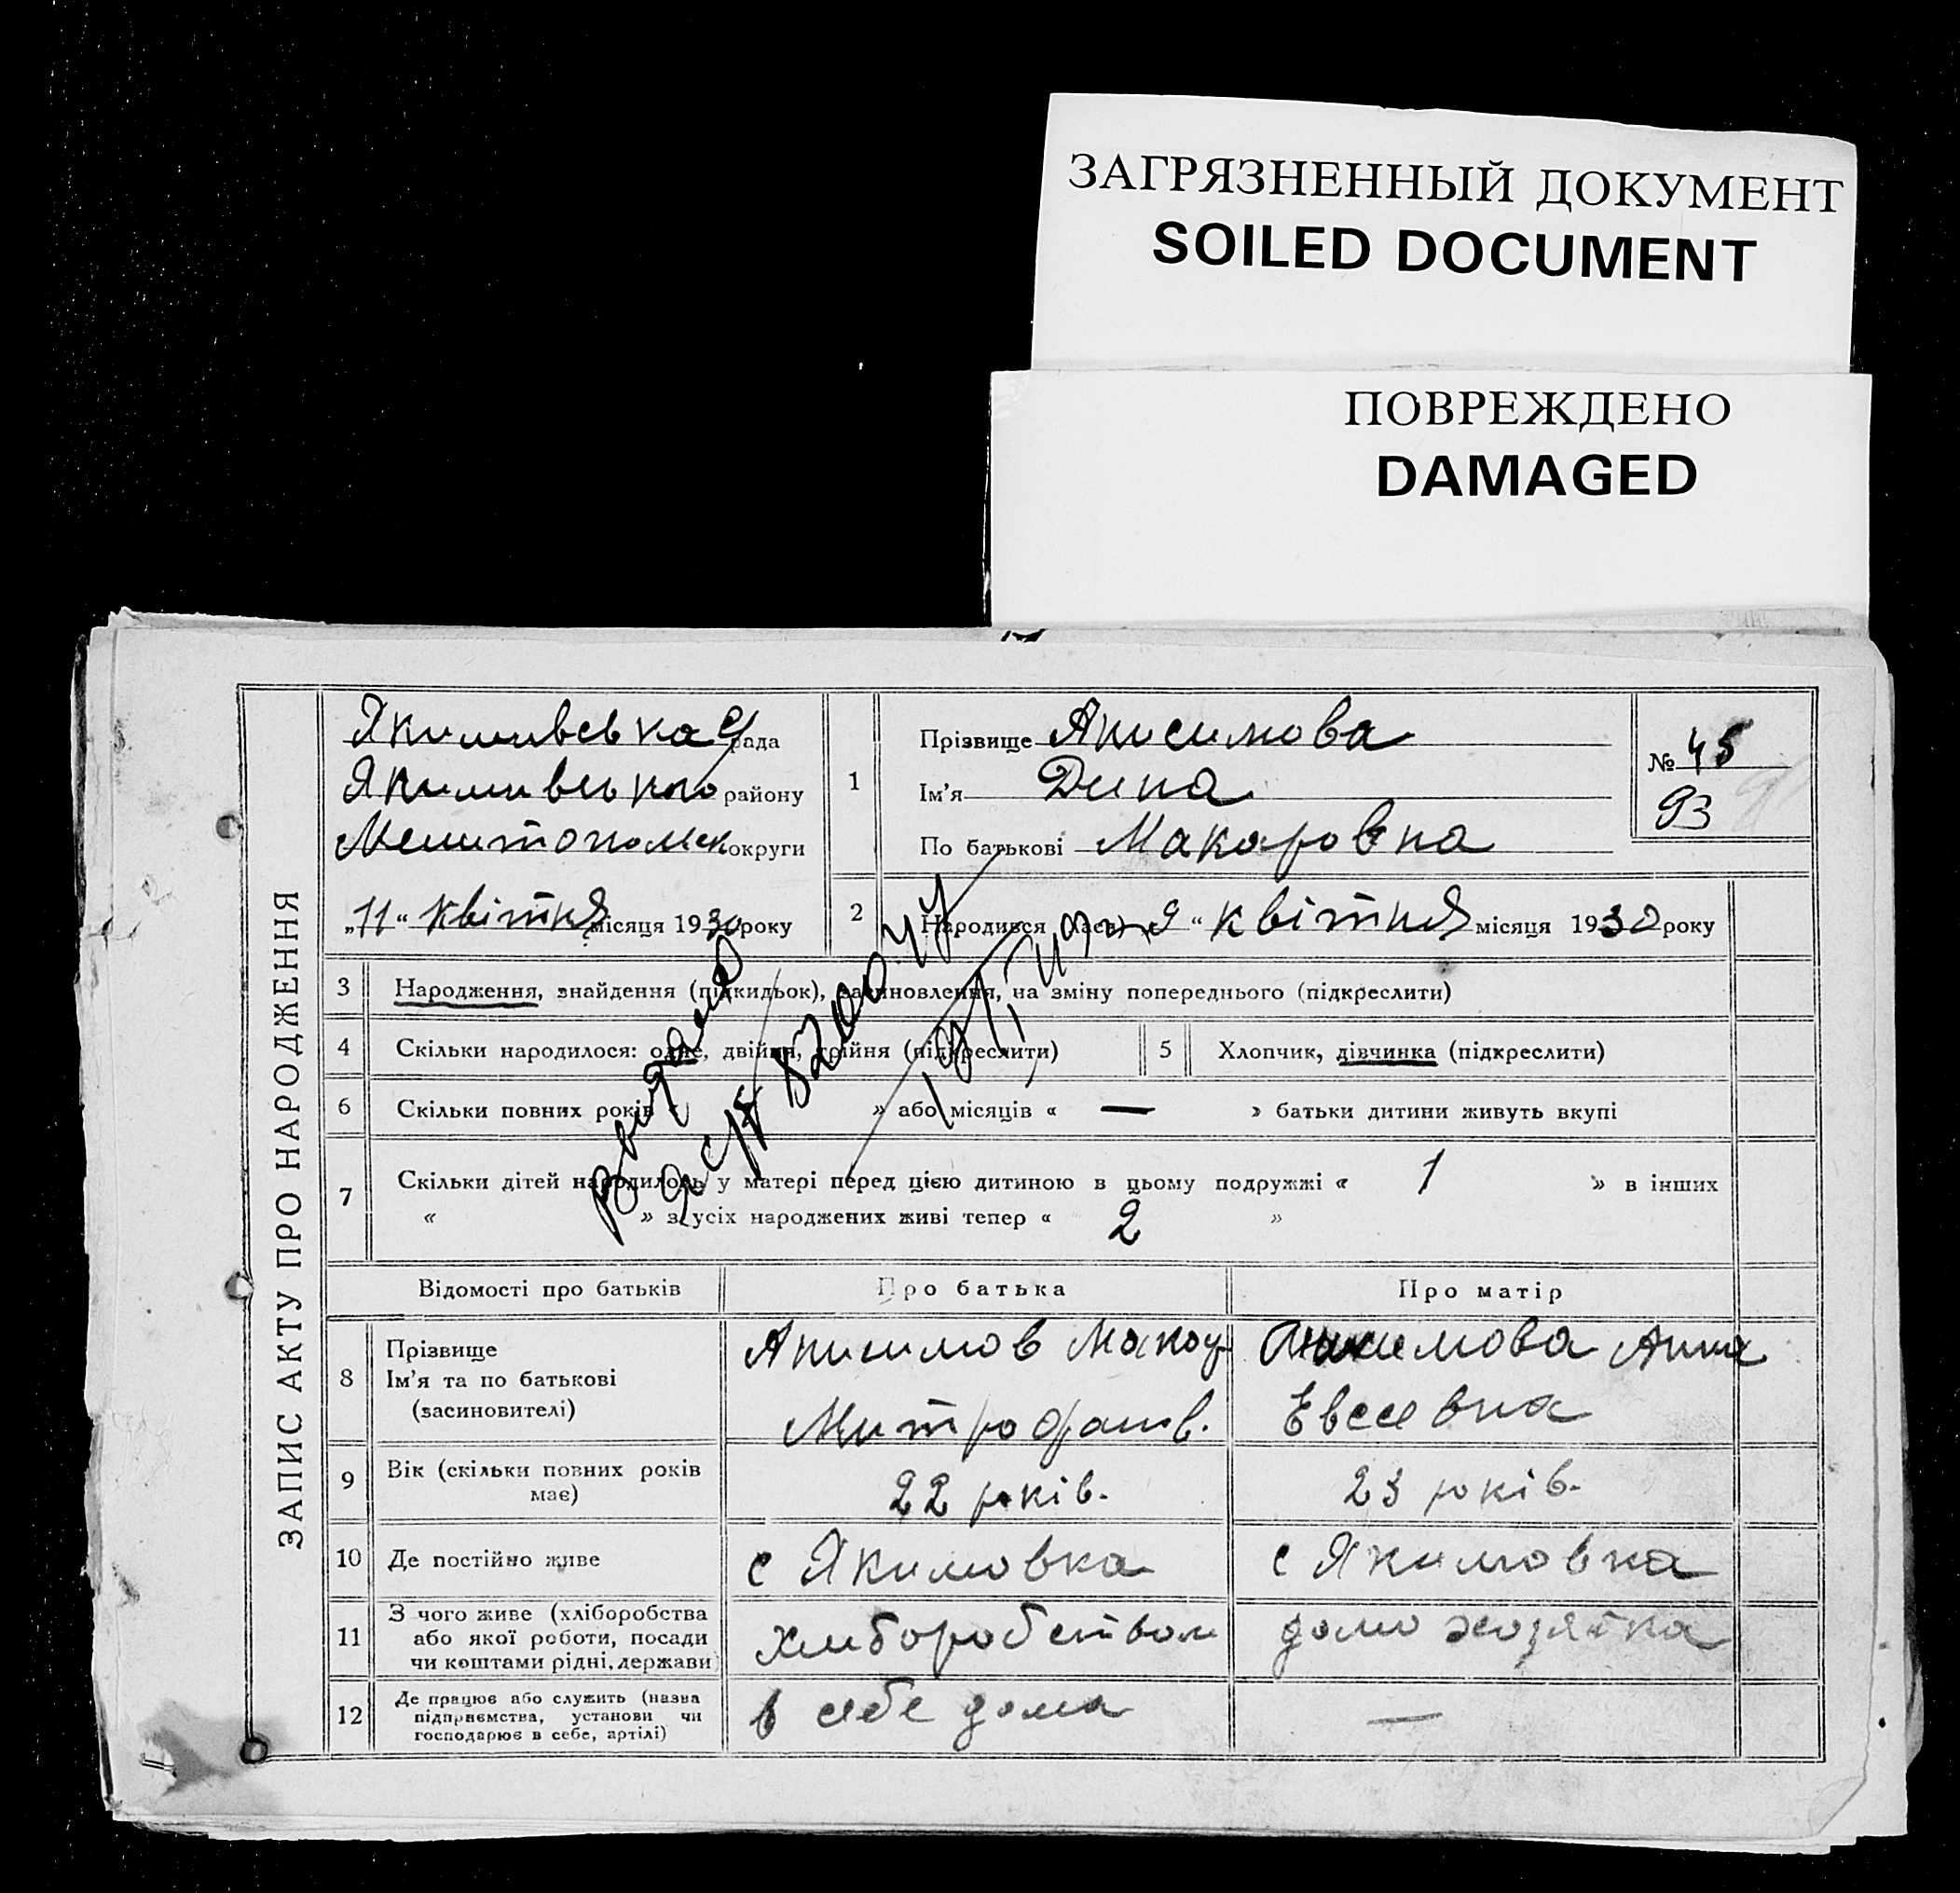 ЗАГРЯЗНЕННЫЙ ДОКУМЕНТ
SOILED DOCUMENT
ПОВРЕЖДЕНО
DAMAGED
ЗАПИС АКТУ ПРО НАРОДЖЕННЯ
Якимивська с/рада
Якимивського району
Мелитопольск округи
„11“ квітня місяця 1930 року
1
Прізвище Анисимова
Ім'я Дина
По батькові Макаровна
№ 45
93
2
Народився (лася) „9“ квітня місяця 1930 року
3 Народження, знайдення (підкидьок), засиновлення, на зміну попереднього (підкреслити)
4 Скільки народилося: одне, двійня, трійня (підкреслити)
5 Хлопчик, дівчинка (підкреслити)
6 Скільки повних років « » або місяців « — » батьки дитини живуть вкупі
7 Скільки дітей народилось у матері перед цією дитиною в цьому подружжі « 1 » в інших
« » з усіх народжених живі тепер « 2 »
Відомості про батьків Про батька Про матір
8 Прізвище
Ім'я та по батькові
(засиновителі)
Анисимов Макар
Митрофанов.
Анисимова Анна
Евсеевна
9 Вік (скільки повних років
має)
22 років.
23 років.
10 Де постійно живе
с Якимовка
с Якимовка
11 З чого живе (хліборобства
або якої роботи, посади
чи коштами рідні, держави)
хлиборобством
домохозяйка
12 Де працює або служить (назва
підприємства, установи чи
господарює в себе, артілі)
в себе дома
—